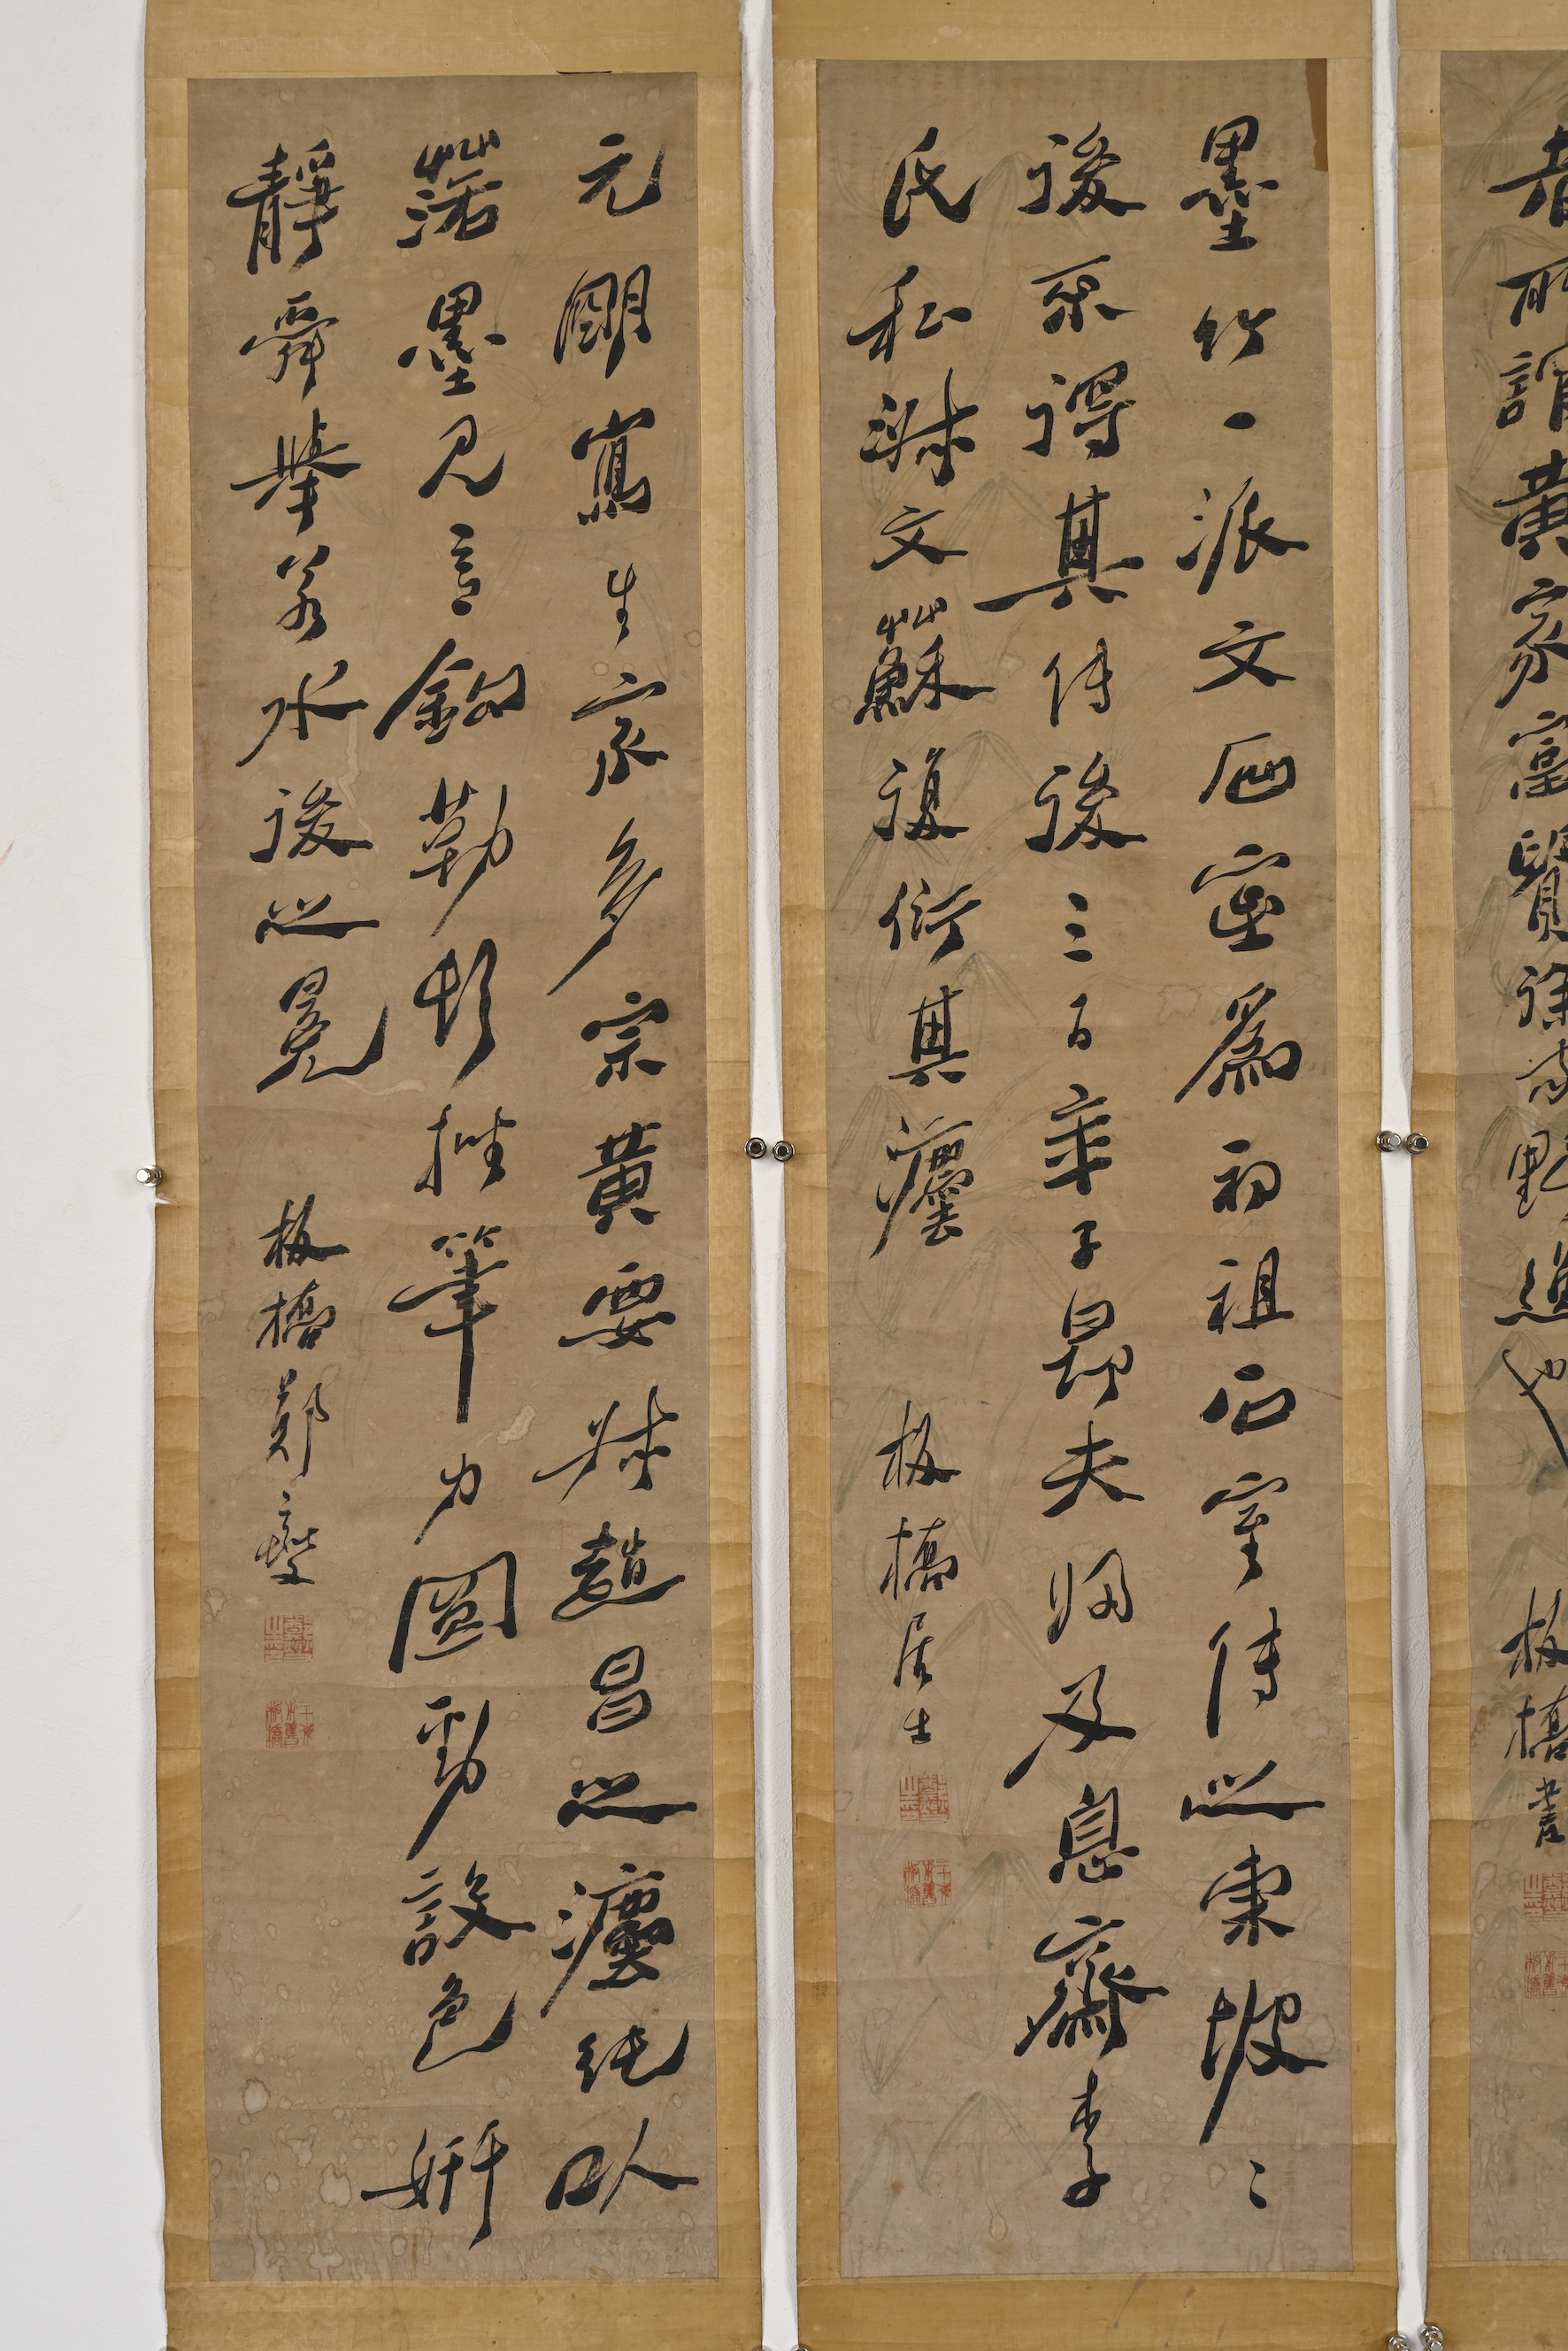 者所謂黃家富貴徐家野逸也
板橋書
墨竹一派文爲初祖石室傳之東坡〻
後不得其傳後三百年子昂夫婦及息齋李
氏私淑文蘇復衍其灋
板橋居士
元朙寫生家多宗黃要叔趙昌之灋純以
落墨見意鉤勒頓挫筆力圓勁設色妍
靜舜舉若水後之冕
板橋鄭燮